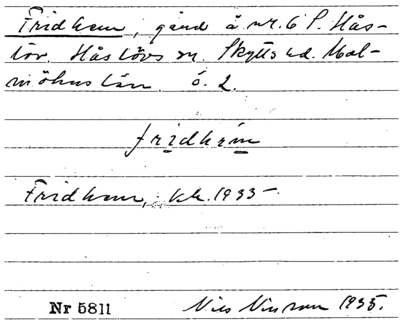 Fridhem, gård å nr. 6 P. Hås-
löv. Håslövs sn. Skytts hd. Mal-
möhus län. ö. 2.
fridhem
Fridhem, kk. 1935
Nr 5811
Nils Nilsson 1935.